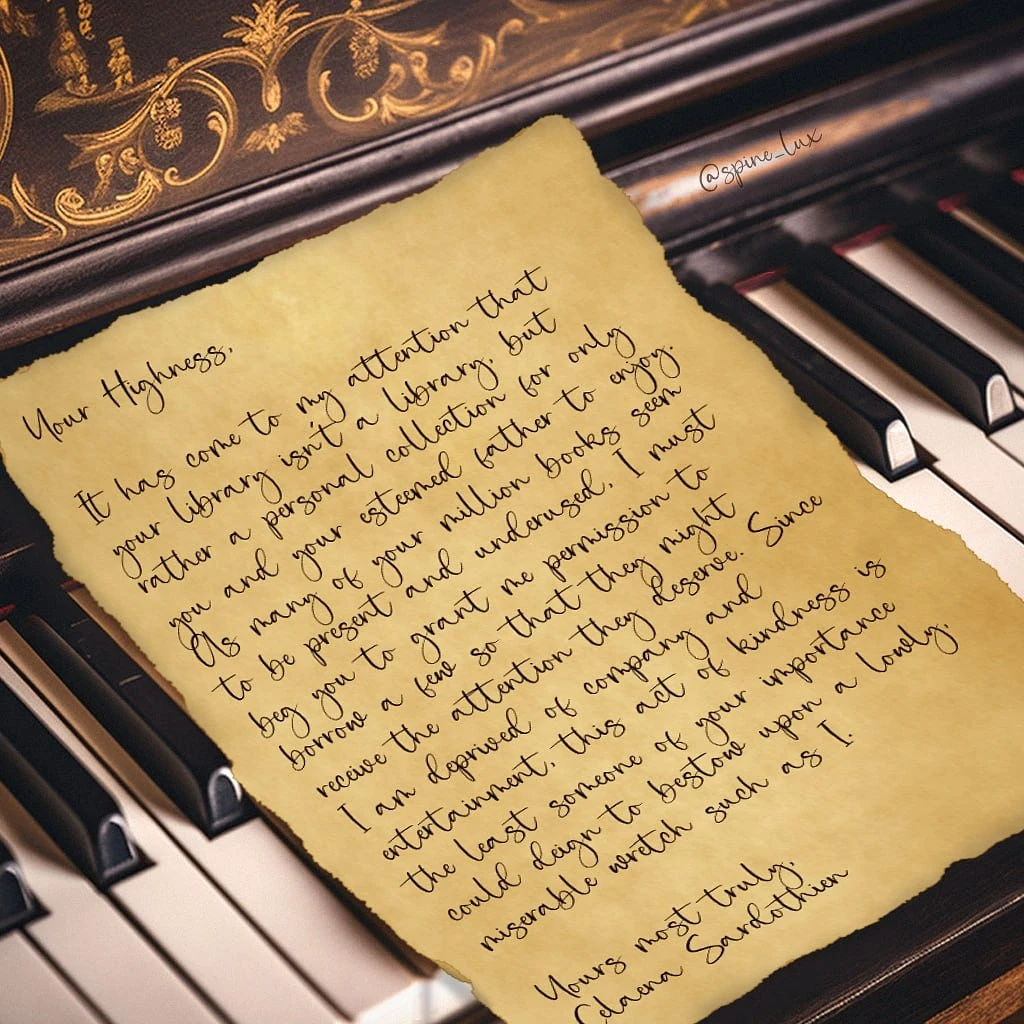 @spine_lux
Your Highness,
It has come to my attention that
your library isn't a library, but
rather a personal collection for only
you and your esteemed father to enjoy.
As many of your million books seem
to be present and underused, I must
beg you to grant me permission to
borrow a few so that they might
receive the attention they deserve. Since
I am deprived of company and
entertainment, this act of kindness is
the least someone of your importance
could deign to bestow upon a lowly,
miserable wretch such as I.
Yours most truly,
Celaena Sardothien